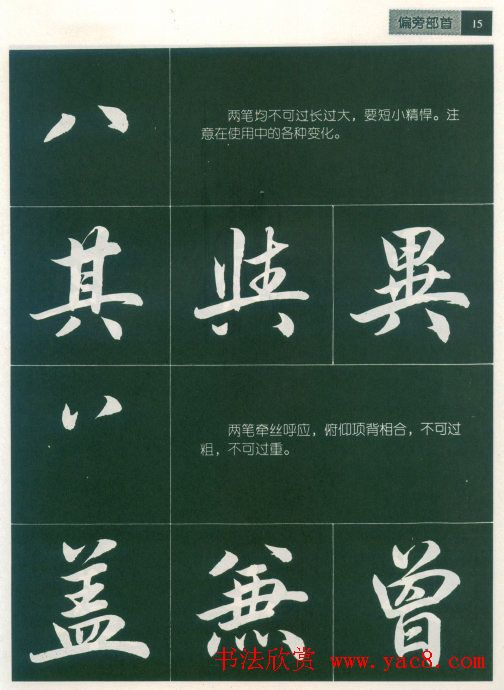 偏旁部首 15
八
两笔均不可过长过大，要短小精悍。注
意在使用中的各种变化。
其 與 異
丷
两笔牵丝呼应，俯仰项背相合，不可过
粗，不可过重。
盖 兼 曾
书法欣赏 www.yac8.com